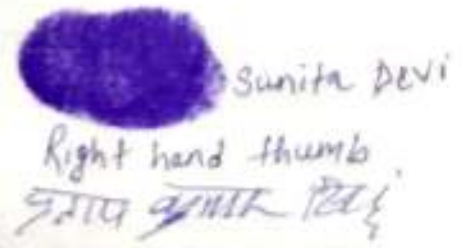 Sunita Devi
Right hand thumb
प्रताप कुमार सिंह